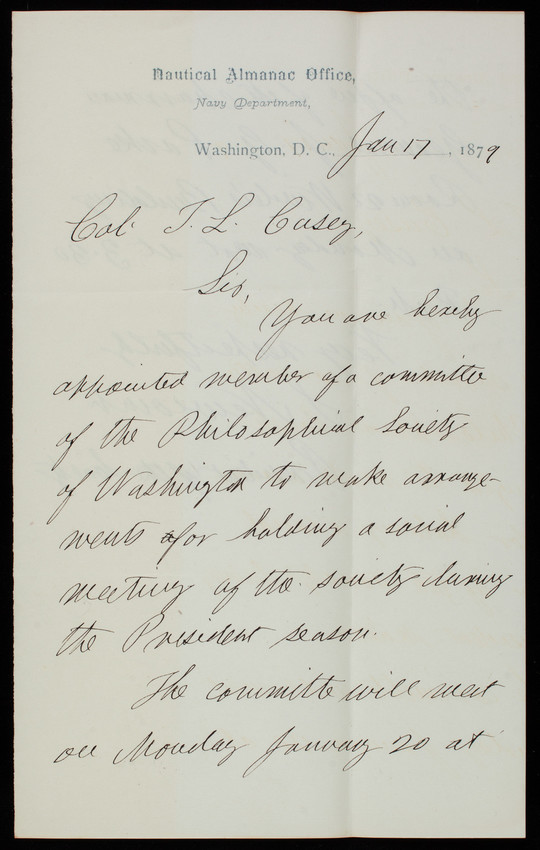 Nautical Almanac Office,
Navy Department,
Washington, D. C., Jan 17, 1879
Col. T. L. Casey,
Sir,
You are hereby
appointed member of a committe
of the Philosophical Society
of Washington to make arrange-
ments for holding a social
meeting of the society during
the President season.
The committe will meet
on Monday January 20 at